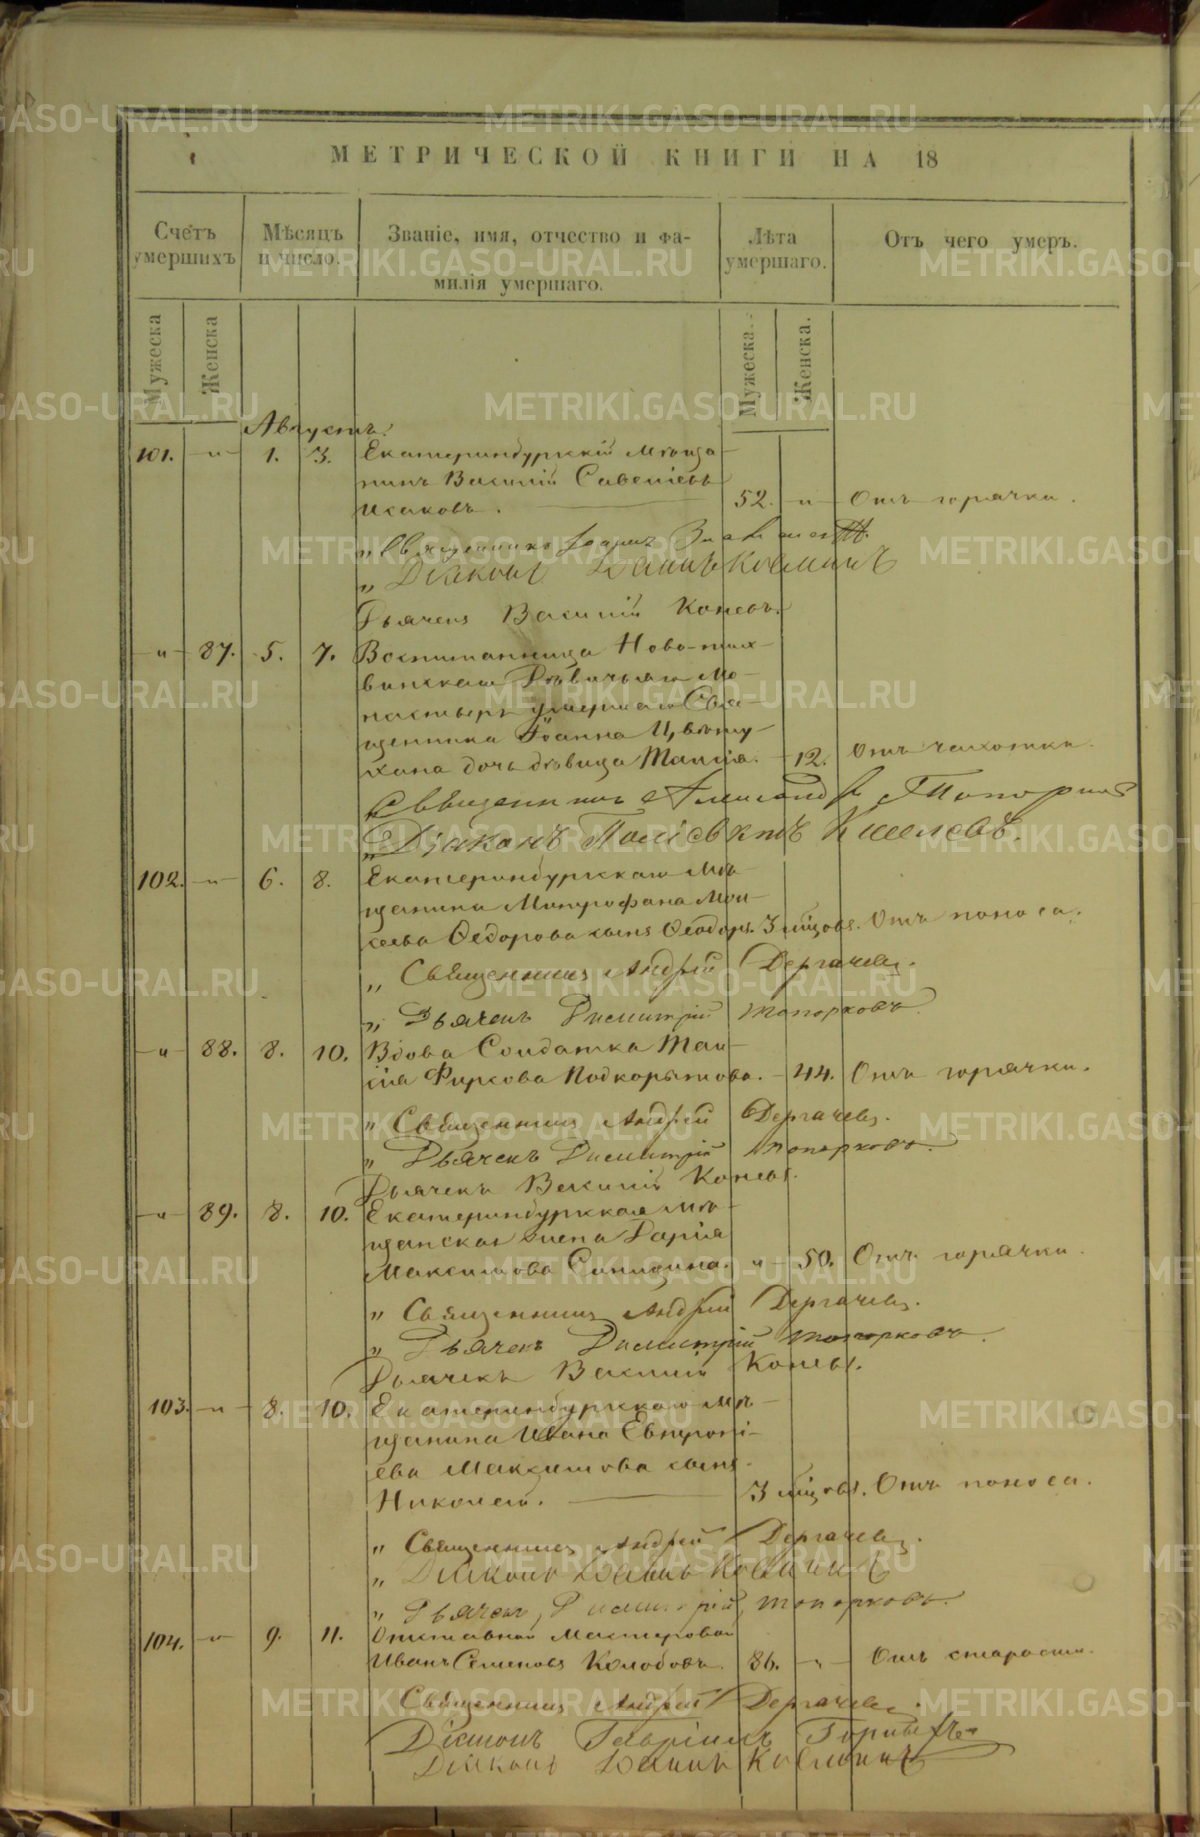 МЕТРИЧЕСКОЙ КНИГИ НА 18
Счетъ умершихъ
Мѣсяцъ и число.
Званіе, имя, отчество и фа-
милія умершаго.
Лѣта умершаго.
Отъ чего умеръ.
Мужеска
Женска
Мужеска.
Женска.
Августъ.
101. " 1. 3. Екатеринбургскій мѣща-
нинъ Василій Савеліевъ
Исаковъ. 52. " Отъ горячки.
" Священникъ Іоаннъ
" Діаконъ Іоаннъ Косминъ
Дьячекъ Василій Коневъ.
" 87. 5. 7. Воспитанница Ново-тих-
винскаго Дѣвичьяго Мо-
настыря умершаго Свя-
щенника Іоанна
дочь дѣвица Таисія. 12. Отъ чахотки.
Священникъ Александръ
" Діаконъ Киселевъ.
102. " 6. 8. Екатеринбургскаго мѣ-
щанина Митрофана Мои-
сеева Ѳедорова сынъ Ѳеодоръ. 3 мѣцовъ. Отъ поноса.
" Священникъ Андрей Дергачевъ.
" Дьячекъ Димитрій Топорковъ.
" 88. 8. 10. Вдова Солдатка Таи-
сія Фиркова Подкорытова. 44. Отъ горячки.
" Священникъ Андрей Дергачевъ.
" Дьячекъ Димитрій Топорковъ.
Дьячекъ Василій Коневъ.
" 89. 8. 10. Екатеринбургская мѣ-
щанская жена Дарія
Максимова Синицина. " 50. Отъ горячки.
" Священникъ Андрей Дергачевъ.
" Дьячекъ Димитрій Топорковъ.
Дьячекъ Василій Коневъ.
103. " 8. 10. Екатеринбургскаго мѣ-
щанина Ивана Евтропі-
ева Максимова сынъ
Николай. 3 мѣцовъ. Отъ поноса.
" Священникъ Андрей Дергачевъ.
" Діаконъ Іоаннъ Косминъ
" Дьячекъ, Димитрій Топорковъ.
104. " 9. 11. Отставной Мастеровой
Иванъ Семеновъ Колобовъ. 86. " Отъ старости.
Священникъ Андрей Дергачевъ.
Діаконъ Гавріилъ
Діаконъ Іоаннъ Косминъ
METRIKI.GASO-URAL.RU